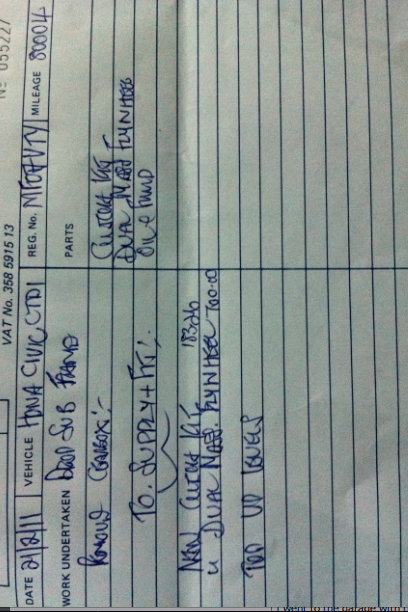 No 055227
VAT No. 358 5915 13
DATE 21/2/11 VEHICLE HONDA CIVIC CTDI REG. No. MF07VTY MILEAGE 80004
WORK UNDERTAKEN DROP SUB FRAME
PARTS
REMOVE GEARBOX:-
CLUTCH KIT
DUAL MASS FLYWHEEL
TO. SUPPLY + FIT:-
NEW CLUTCH KIT 183.26
" DUAL MASS FLYWHEEL 700.00
TOP UP LEVELS
I went to the garage with